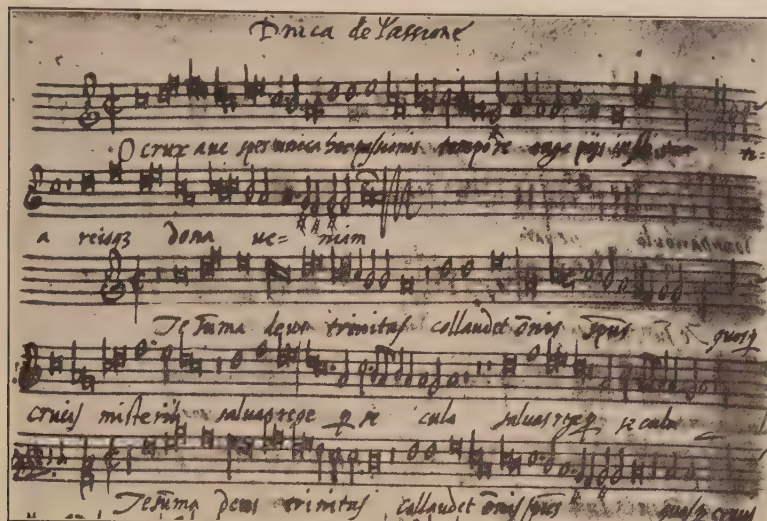 Dnica de Passione
O crux aue spes unica hoc passionis tempore auge pijs
a reisq3 dona ue= niam
Te suma deus trinitas collaudet omis spus quos
crucis misterih saluas rege se cula saluas se cula
Te suma deus trinitas collaudet omis spus quos crucis